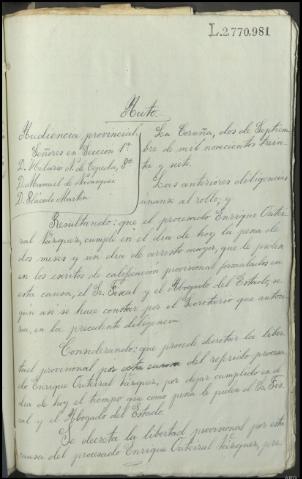 L.2770.981
Auto.
Audiencia provincial
Señores en Sección 1ª
D. Hilario Nª de Cepeda, Pte
D. Manuel de
D. Plácido Martín
La Coruña, dos de Septiem
bre de mil novecientos trein
ta y siete.
Las anteriores diligencias
unanse al rollo; y
Resultando: que el procesado Enrique Ous
ral Vázquez, cumple en el dia de hoy la pena de
dos meses y un dia de arresto mayor, que le piden
en los escritos de calificación provisional formulados en
esta causa, el Sr. Fiscal y el Abogado del Estado, se
gun asi se hace constar por el Secretario que autori
za, en la precedente diligencia.
Considerando: que procede decretar la liber
tad provisional por esta causa del referido procesa
do Enrique Vázquez, por dejar cumplido en el
dia de hoy el tiempo que como pena le piden el Sr. Fis
cal y el Abogado del Estado.
Se decreta la libertad provisional por esta
causa del procesado Enrique Vázquez, pre